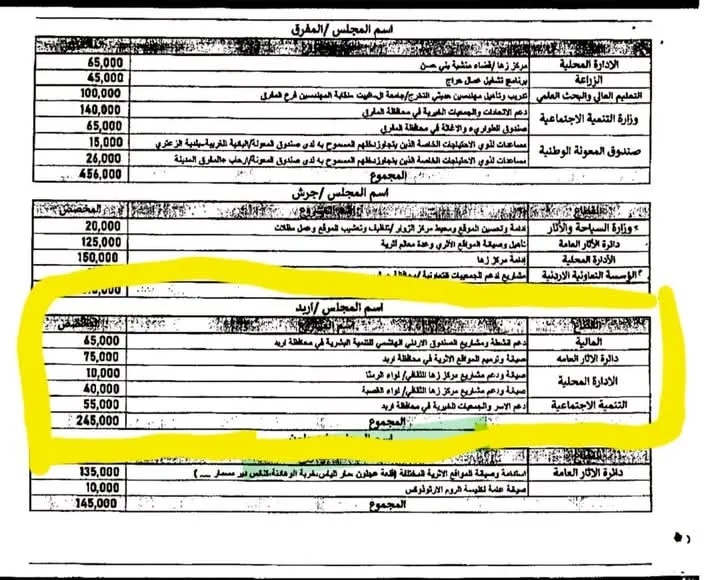 اسم المجلس /المفرق
الادارة المحلية مركز زها /قضاء منشية بني حسن 65,000
الزراعة برنامج تشغيل عمال حراج 45,000
التعليم العالي والبحث العلمي تدريب وتأهيل مهندسين حديثي التخرج/جامعة ال البيت -نقابة المهندسين فرع المفرق 100,000
وزارة التنمية الاجتماعية دعم الاتحادات والجمعيات الخيرية في محافظة المفرق 140,000
صندوق الطوارىء والاغاثة في محافظة المفرق 65,000
صندوق المعونة الوطنية مساعدات لذوي الاحتياجات الخاصة الذين يتجاوز دخلهم المسموح به لدى صندوق المعونة/البادية الغربية-بلدية الزعتري 15,000
مساعدات لذوي الاحتياجات الخاصة الذين يتجاوز دخلهم المسموح به لدى صندوق المعونة/ارحاب -المفرق المدينة 26,000
المجموع 456,000
اسم المجلس /جرش
القطاع المشروع المخصص
وزارة السياحة والآثار ادامة وتحسين الموقع ومحيط مركز الزوار /تنظيف وتعشيب الموقع وعمل مظلات 20,000
دائرة الآثار العامة تأهيل وصيانة المواقع الأثري وعدة معالم اثرية 125,000
الادارة المحلية إدامة مركز زها 150,000
المؤسسة التعاونية الاردنية مشاريع لدعم الجمعيات التعاونية/محافظة
اسم المجلس /اربد
القطاع اسم المشروع المخصص
المالية دعم انشطة ومشاريع الصندوق الاردني الهاشمي للتنمية البشرية في محافظة اربد 65,000
دائرة الآثار العامه صيانة وترميم المواقع الاثرية في محافظة اربد 75,000
الادارة المحلية صيانة ودعم مشاريع مركز زها الثقافي/ لواء الرمثا 10,000
صيانة ودعم مشاريع مركز زها الثقافي/ لواء القصبة 40,000
التنمية الاجتماعية دعم الاسر والجمعيات الخيرية في محافظة اربد 55,000
المجموع 245,000
دائرة الآثار العامة استدامة وصيانة المواقع الاثرية المختلفة (قلعة عجلون ،مار الياس،خربة الوهادنة،كنائس دير سمسار ....) 135,000
صيانة عامة لكنيسة الروم الارثوذوكس 10,000
المجموع 145,000